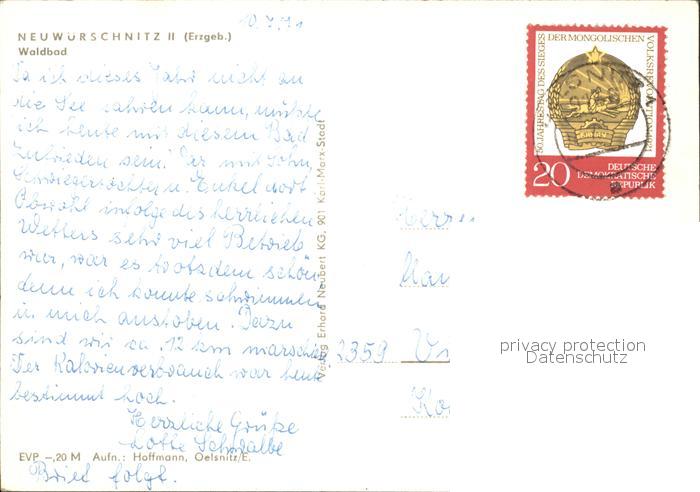 10.7.71
NEUWÜRSCHNITZ II (Erzgeb.)
Waldbad
Da ich dieses Jahr nicht an
die See fahren kann, mußte
ich heute mit diesem Bad
zufrieden sein. War mit Sohn,
Schwiegertochter u. Enkel dort.
Obwohl infolge des herrlichen
Wetters sehr viel Betrieb
war, war es trotzdem schön,
denn ich konnte schwimmen
u. mich austoben. Dazu
sind wir ca. 12 km marschiert
Der Kalorienverbrauch war heute
bestimmt hoch.
Herzliche Grüße
Lotte Schwalbe
EVP –,20 M Aufn.: Hoffmann, Oelsnitz/E.
Brief folgt.
Verlag Erhard Neubert KG, 901 Karl-Marx-Stadt
50. JAHRESTAG DES SIEGES DER MONGOLISCHEN VOLKSREVOLUTION 1921
20
DEUTSCHE
DEMOKRATISCHE
REPUBLIK
Herr
2359
privacy protection
Datenschutz